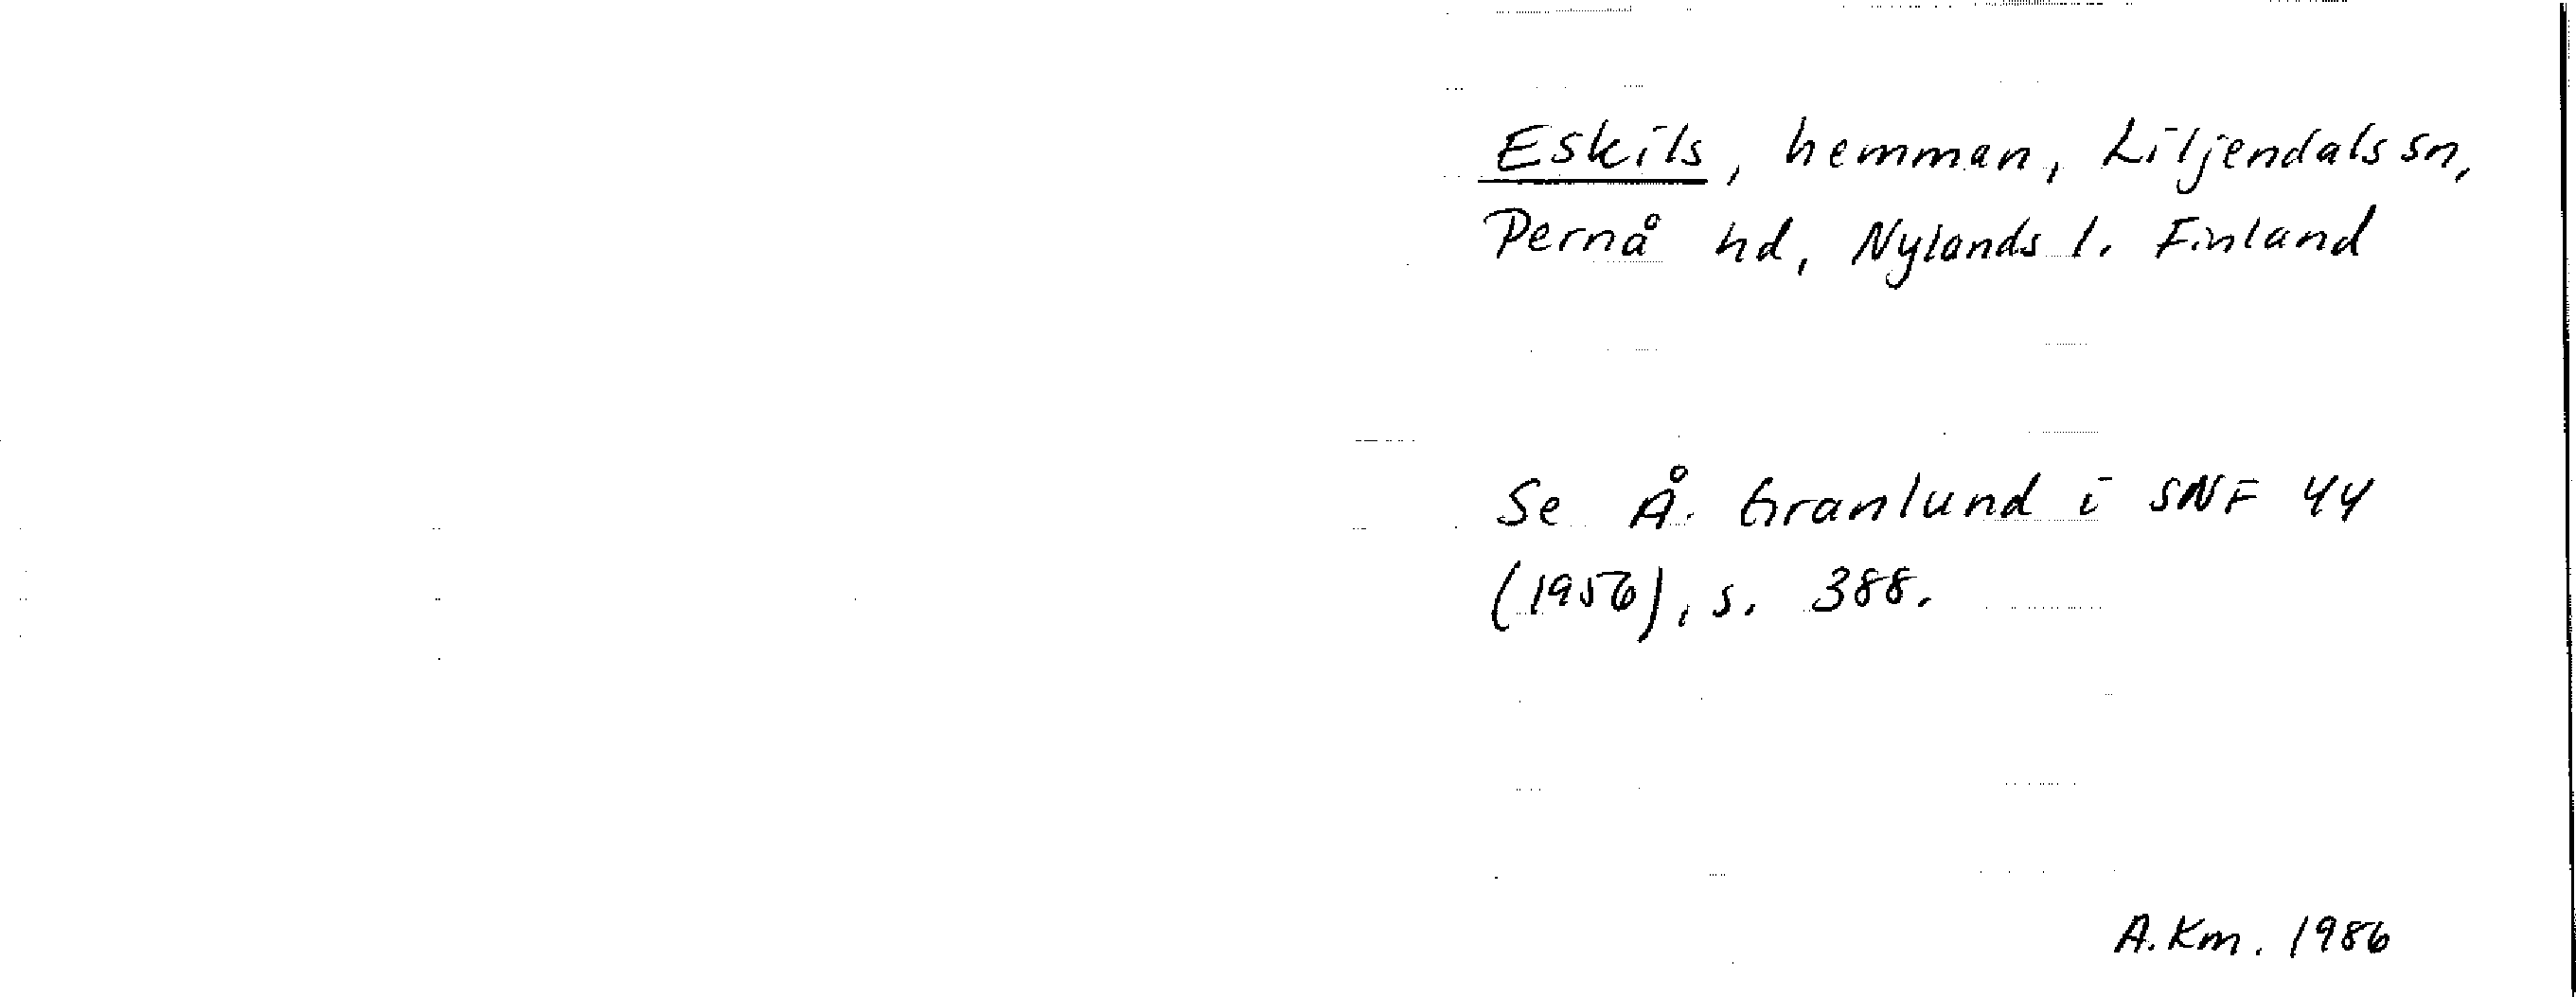 Eskils, hemman, Liljendals sn,
Pernå hd, Nylands l. Finland
Se Å. Granlund i SNF 44
(1956), s. 388.
A. Km. 1986